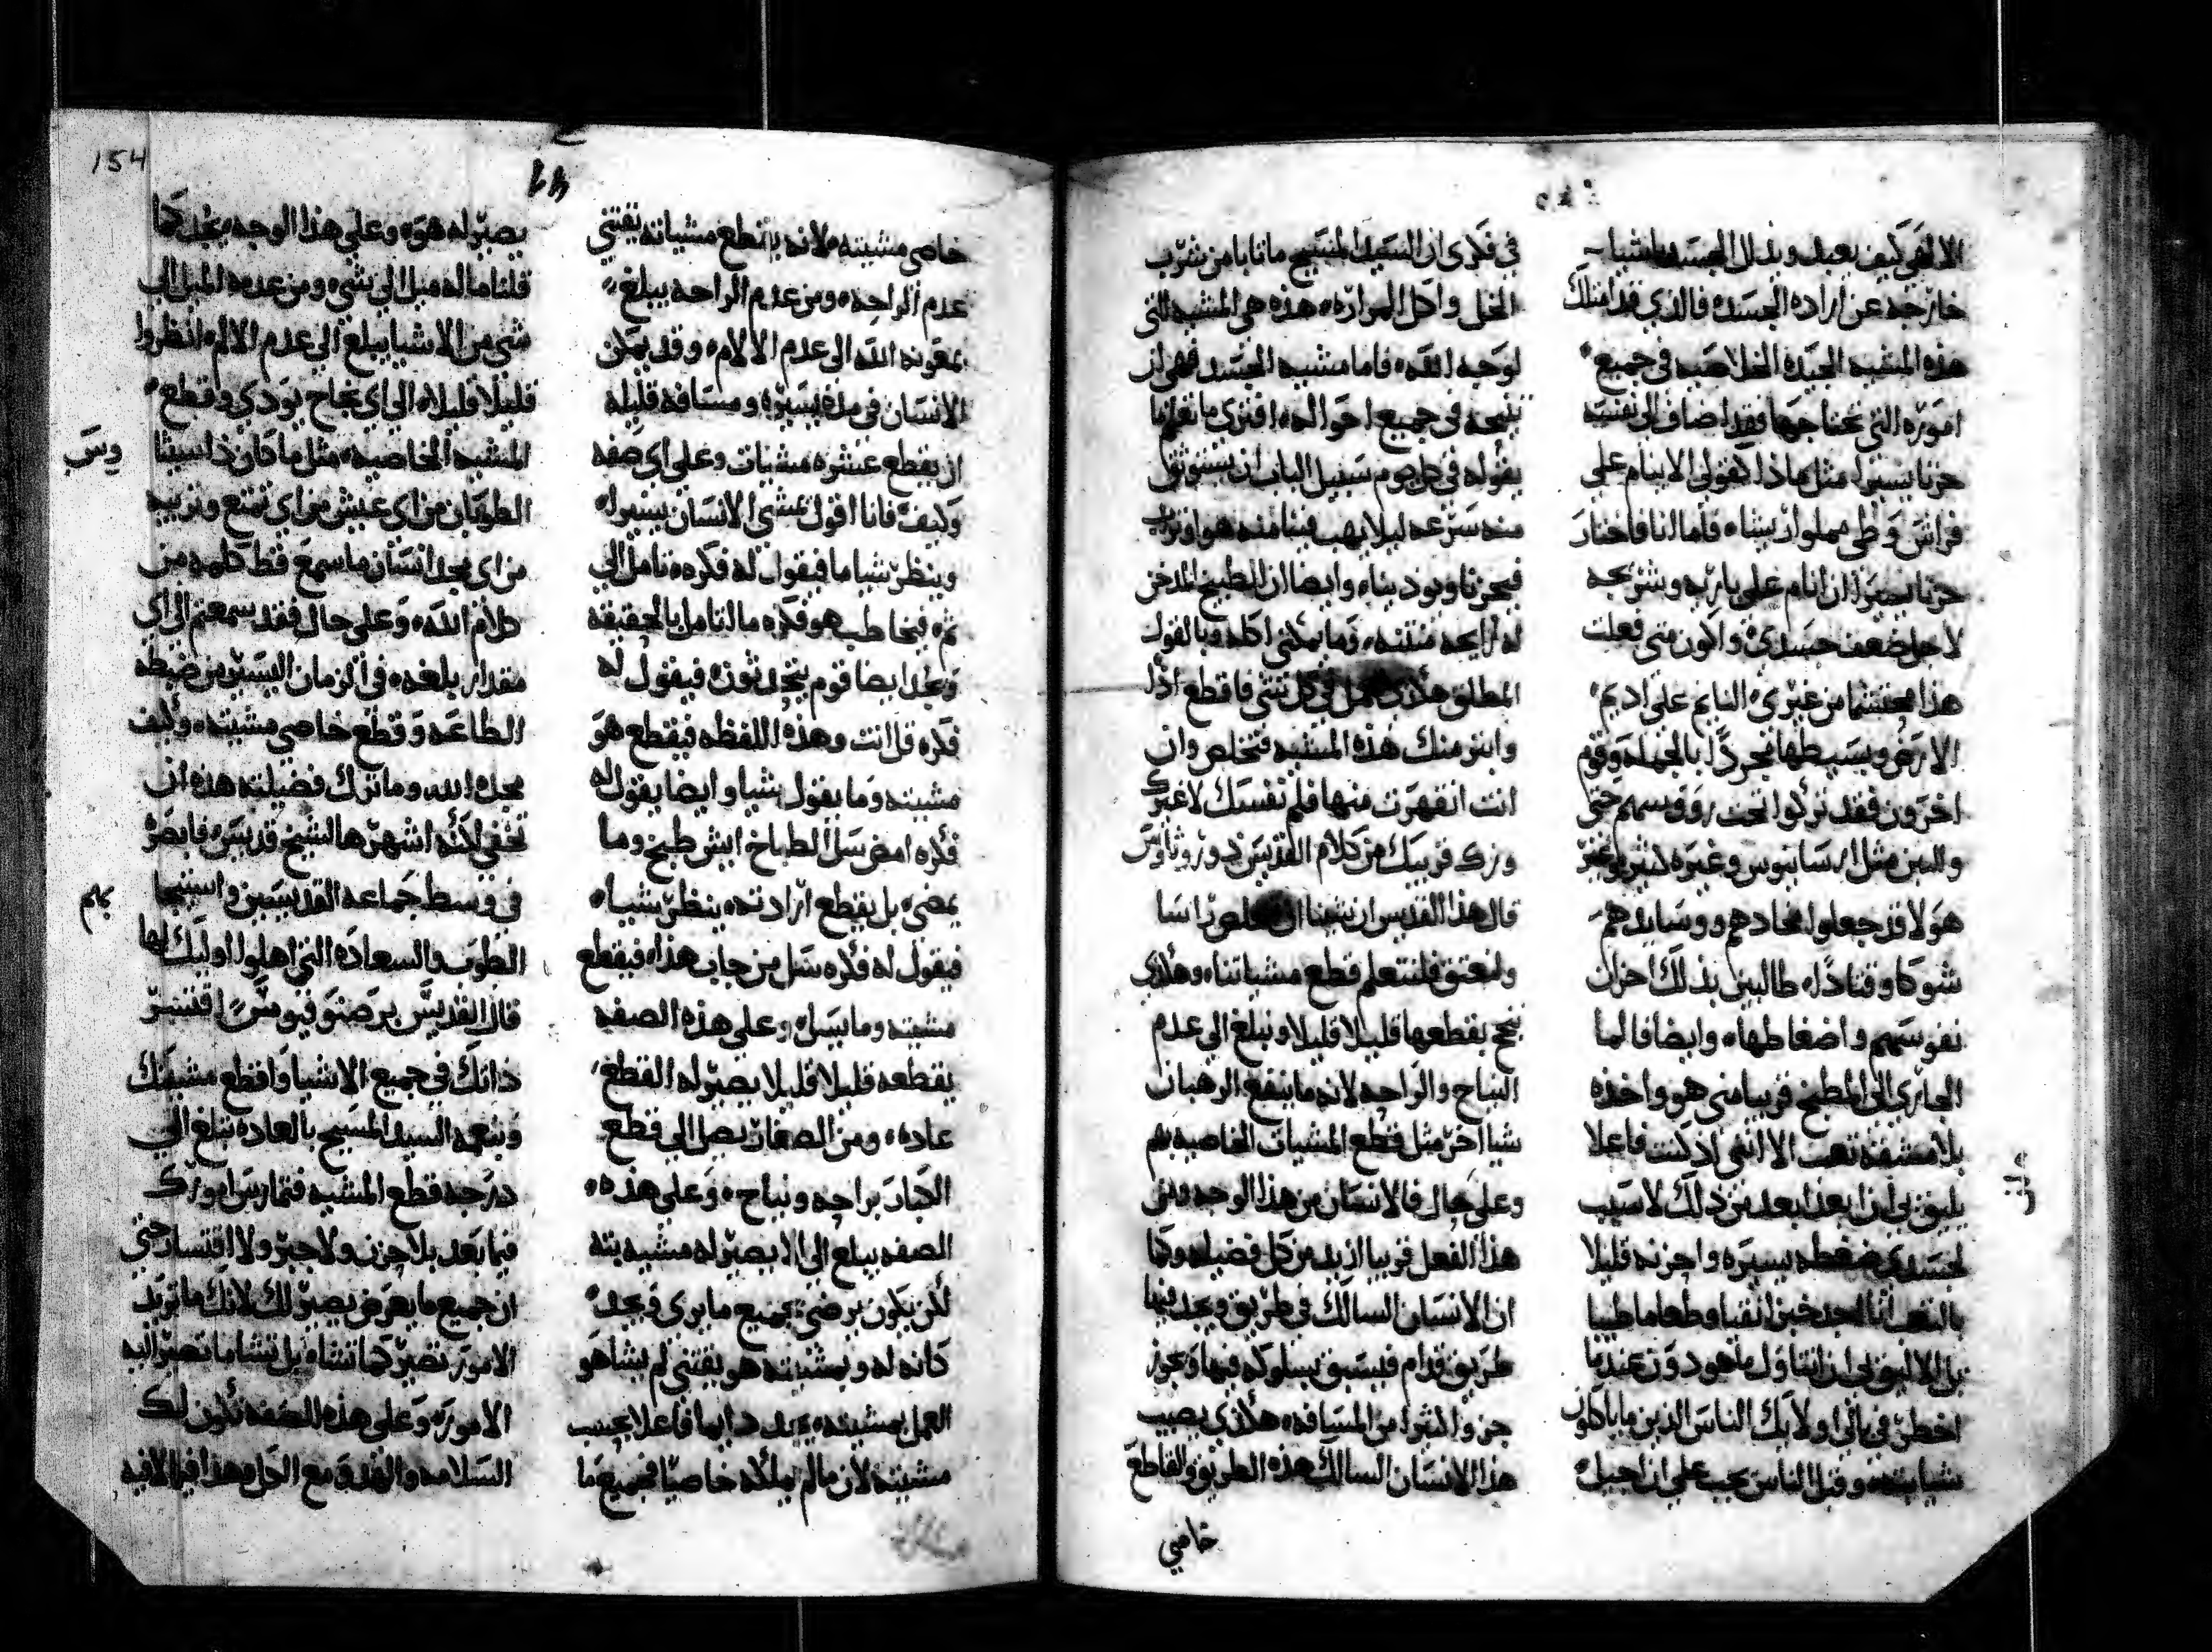 الالهي كيف يعبد ويذلل الجسد باشيا
خارجه عن اراده الجسد، فالذي قد امتلك
هذه المشيه الجيده الخلاصيه في جميع
اموره التي يحتاجها فقد اضاف الى نفسه
حزنا يسيرا مثل ماذا كقولي الا ينام علي
فراش وطي مملوا ريشا، فاما انا فاختار
حزنا يصير ان انام على باريه وشريحه
لاجل ضعف جسدي، واكون متى فعلت
هذا محتشما من غيري النايم على اديم
الارض وبسيطها مجردا بالجمله، وقوم
اخرون فقد تركوا تحت روؤسهم حتى
والبن مثل ارسانيوس وغيره كثير وغير
هولا قد جعلوا مخادهم ووسايدهم
شوكا وقتادا، طالبين بذلك احزان
نفوسهم واضغاطها، وايضا فالما
الجاري الى المطبخ قريبا مني هو واخذه
بلا مشقه تعب الا انني اذ كنت فاعلا
يليق بي ان ابعد ابعد من ذلك لاسبب
لجسدي ضغطه يسيره واحزنه قليلا
بالتعب انا اجد خبزا نقيا وطعاما طيبا
بل الاليق بي ان اتناول ما هو دون عندما
اخطر في بالي اوليك الناس الذين ما ياكلون
شيا بته، وقبل الناس يجب علي ان اجيل
في فكري ان السيد المسيح ما تابا من شرب
الخل واكل المراره، هذه هي المشيه التي
لوجه الله، فاما مشيه الجسد فهي ان
تنيحه في جميع احواله، افترى ما تعلم ما
يقوله في كل يوم سبيل الباب ان يستوثق
منه سرعه ليلا يهب فينا منه هوا وتراب
فيحزنا ويوذينا، وايضا ان الطبيخ المدخن
له رايحه منتنه، وما يمكنني اكله وبالقول
المطلق هكذا يعمل في كل شي فاقطع اذا
وابتر منك هذه المشيه فتخلص وان
انت انقهرت منها فلم نفسك لا غيرك
وزك قريبك من كلام القديس دوروثاوس
قال هذا القديس ان شينا ان نخلص راسا
ولنعتق فلنتعلم قطع مشياتنا، وهكذي
ننجح بقطعها قليلا قليلا ونبلغ الي عدم
النياح والراحه لانه ما ينفع الرهبان
شيا اخر مثل قطع المشيات الخاصيه بهم
وعلى كل حال فالانسان من هذا الوجه ومن
هذا الفعل قريبا ازيد من كل فضيله وكما
ان الانسان السالك في طريق ويجد فيها
طريق قدام فيسبق بسلوكه فيها ويحوز
جزوا كثيرا من المسافه، هكذي يصيب
هذا الانسان السالك هذه الطريق والقاطع
خاصي
154
خاصي مشيته، لانه بانطع مشياته يقتني
عدم الراحه، ومن عدم الراحه يبلغ
بمعونه الله الى عدم الالام، وقد يمكن
الانسان في مده يسيره ومسافه قليله
ان يقطع عشره مشيات وعلي اي صفه
وكيف، فانا اقول يمشي الانسان يسيرا،
وينظر شيا ما فيقول له فكره، تامل الي
ثم، فيخاطب هو فكره ما اتامل بالحقيقه
ويجد ايضا قوم يتحدثون، فيقول له
فكره قل انت وهذه اللفظه فيقطع هو
مشيته وما يقول شيا، وايضا يقول له
فكره امضي سل الطباخ ايش طبخ وما
يمضي، بل يقطع ارادته، ينظر شيا،
فيقول له فكره سل من جاب هذا، فيقطع
مشيته وما يسل، وعلي هذه الصفه
يقطعه قليلا قليلا يصير له القطع
عاده، ومن الصغار يصل الي قطع
الكبار براحه ونياح، وعلي هذه
الصفه يبلغ الي الا يصير له مشيه بته
لكن يكون يرضى بجميع ما يرى ويجد
كانه له وبمشيته هو يقتني لم يشا هو
العمل بمشيته، يجد دايما فاعلا بحسب
مشيته لان مالم يملكه خاصيا فجميع ما
يصير له هو، وعلي هذا الوجه يجد كما
قلنا ماله ميل الي شي، ومن عدم الميل الي
شي من الاشيا يبلغ الي عدم الالم، انظروا
قليلا قليلا، الي اي نجاح يودي وقطع
المشيه الخاصيه، مثل ما كان ذاسيثا
وس
الطوبان من اي عيش من اي تمتع وتربيه
من اي مجد انسان ما سمع قط كلمه من
كلام الله، وعلى حال فقد سمعتم الى اي
مقدار بلغه، في الزمان اليسير من ضبطه
الطاعه وقطع خاصي مشيته، وكيف
مجده الله وما ترك فضيلته هذه ان
تخفى لكنه اشهرها لشيخ قديس، فابصر
في وسط جماعه القديسين واستنجا
بهم
الطوب والسعاده التي اهلوا اوليك لها
قال القديس برصنوفيوس، اقتسر
ذاتك في جميع الاشيا واقطع مشيتك
وبنعمه السيد المسيح بالعاده تبلغ الي
درجه قطع المشيه فتمارس امورك
فيما بعد بلا حزن ولا جبر ولا اقتسار حتي
ان جميع ما يعرض يصير لك لانك ما تريد
الامور تصير كما تشاء، بل تشا ما تصير اليه
الامور، وعلي هذه الصفه تكون لك
السلامه والهدو مع الكل وهذا فيما لا فيه